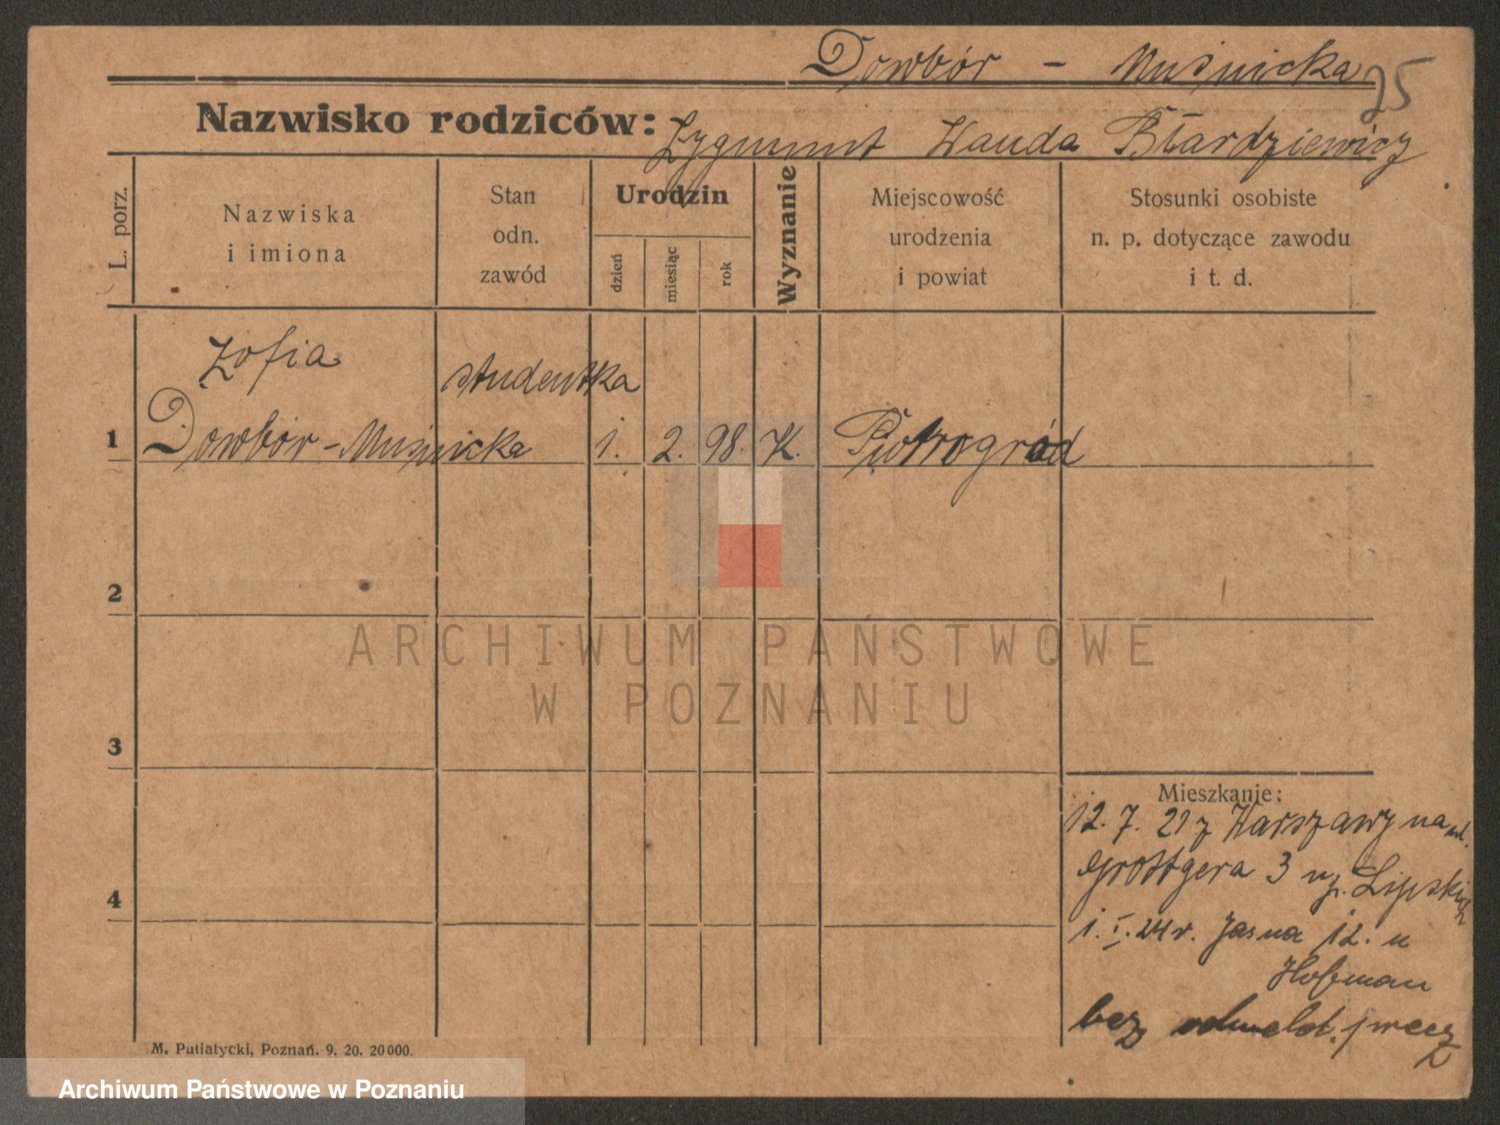 Dowbór - Muśnicka
25
Nazwisko rodziców: Zygmunt Wanda Błardziewicz
L. porz.
Nazwiska
i imiona
Stan
odn.
zawód
Urodzin
dzień
miesiąc
rok
Wyznanie
Miejscowość
urodzenia
i powiat
Stosunki osobiste
n. p. dotyczące zawodu
i t. d.
Zofia studentka
1 Dowbór-Muśnicka 1. 2. 98. K. Piotrogród
2
ARCHIWUM PAŃSTWOWE
W POZNANIU
3
Mieszkanie:
12. 7. 21 z Warszawy na ul.
Grottgera 3 Lipskich
1. I. 24 r. Jasna 12. u
Hofman
bez odmeld. precz
4
M. Putiatycki, Poznań. 9. 20. 20000.
Archiwum Państwowe w Poznaniu